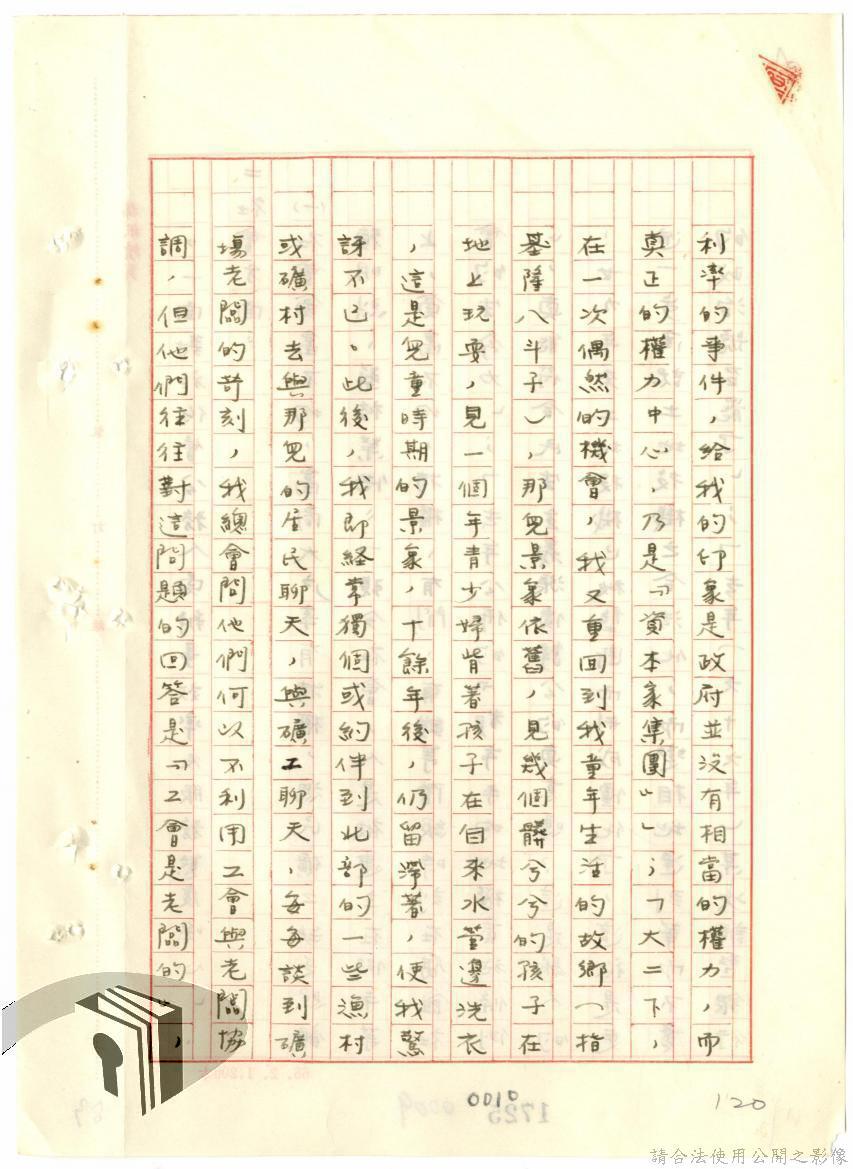 利率的事件，給我的印象是政府並沒有相當的權力，而
真正的權力中心，乃是「資本家集團」」；「大二下，
在一次偶然的機會，我又重回到我童年生活的故鄉（指
基隆八斗子），那兒景象依舊，見幾個髒兮兮的孩子在
地上玩耍，見一個年青少婦背著孩子在自來水管邊洗衣
，這是兒童時期的景象，十餘年後，仍留滯著，使我驚
訝不已。此後，我即経常獨個或約伴到北部的一些漁村
或礦村去與那兒的居民聊天，與礦工聊天，每每談到礦
場老闆的苛刻，我總會問他們何以不利用工會與老闆協
調，但他們往往對這問題的回答是「工會是老闆的」，
0010
1725
0009
120
請合法使用公開之影像